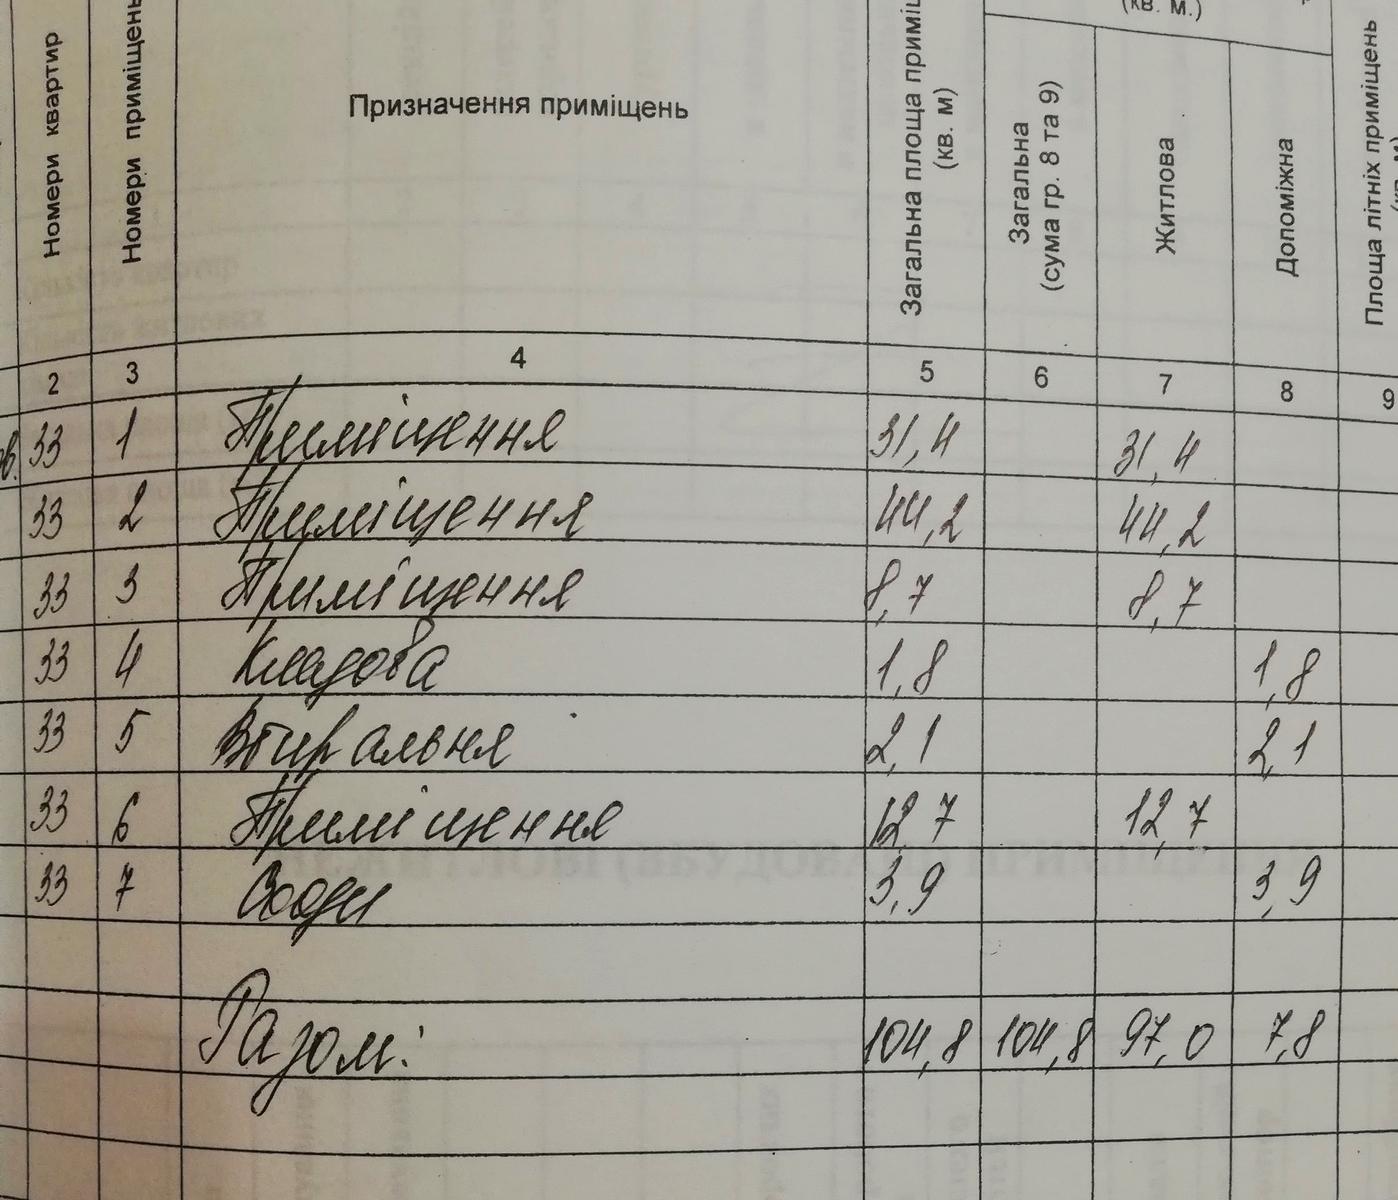 (кв. м.)
Номери квартир
Номери приміщень
Призначення приміщень
Загальна площа приміщ
(кв. м)
Загальна
(сума гр. 8 та 9)
Житлова
Допоміжна
Площа літніх приміщень
2 3 4 5 6 7 8 9
ов. 33 1 Приміщення 31,4 31,4
33 2 Приміщення 44,2 44,2
33 3 Приміщення 8,7 8,7
33 4 Кладова 1,8 1,8
33 5 Вбиральня 2,1 2,1
33 6 Приміщення 12,7 12,7
33 7 Сходи 3,9 3,9
Разом: 104,8 104,8 97,0 7,8